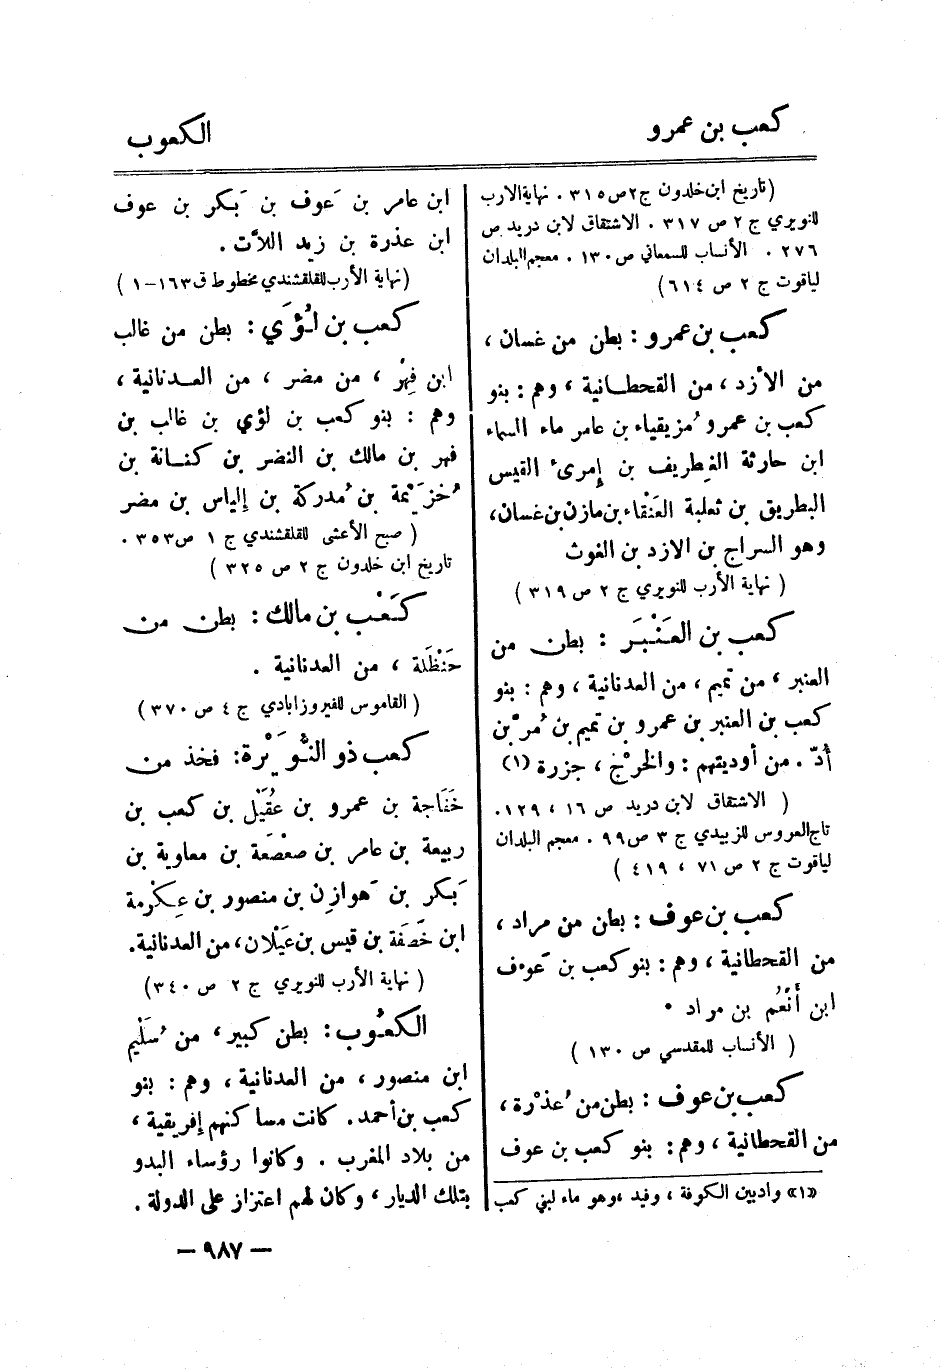 كعب بن عمرو
الكعوب
(تاريخ ابن خلدون ج٢ص٣١٥. نهاية الارب
للنويري ج ٢ ص ٣١٧. الاشتقاق لابن دريد ص
٢٧٦. الأنساب للسمعاني ص١٣٠. معجم البلدان
لياقوت ج ٢ ص ٦١٤)
كعب بن عمرو: بطن من غسان،
من الأزد، من القحطانية، وهم: بنو
كعب بن عمرو مُزيقياء بن عامر ماء السماء
ابن حارثة الغِطريف بن إمرىء القيس
البطريق بن ثعلبة العَنْقاء بن مازن بن غسان،
وهو السراج بن الازد بن الغوث
( نهاية الأرب للنويري ج ٢ ص ٣١٩)
كعب بن العَنْبَر : بطن من
العنبر، من تميم، من العدنانية، وهم: بنو
كعب بن العنبر بن عمرو بن تميم بن مُرّ بن
أدّ. من أوديتهم: والخرْج، جزرة (١)
( الاشتقاق لابن دريد ص ١٦، ١٢٩.
تاج العروس للزبيدي ج ٣ ص٩٩. معجم البلدان
لياقوت ج ٢ ص ٧١، ٤١٩)
كعب بن عوف: بطن من مراد،
من القحطانية، وهم: بنو كعب بن عَوْف
ابن أَنْعُم بن مراد.
( الأنساب للمقدسي ص ١٣٠)
كعب بن عوف: بطن من عُذْرة،
من القحطانية، وهم: بنو كعب بن عوف
«١» واديين الكوفة، وفيد، وهو ماء لبني كعب
ابن عامر بن عَوف بن بَكر بن عوف
ابن عذرة بن زيد اللأت.
(نهاية الأرب للقلقشندي مخطوط ق١٦٣-١)
كعب بن لُؤَي: بطن من غالب
ابن فِهْر، من مضر، من العدنانية،
وهم: بنو كعب بن لؤي بن غالب بن
فهر بن مالك بن النضر بن كنانة بن
خُزَيْمة بن مُدركة بن إلياس بن مضر
( صبح الأعشى للقلقشندي ج ١ ص٣٥٣.
تاريخ ابن خلدون ج ٢ ص ٣٢٥)
كَعْب بن مالك: بطن من
حَنْظَلة، من العدنانية.
( القاموس للفيروزابادي ج ٤ ص ٣٧٠)
كعب ذو النُّوَيْرة: فخذ من
خَفَاجة بن عمرو بن عُقَيْل بن كعب بن
ربيعة بن عامر بن صعْصَعة بن معاوية بن
بَكر بن هَوازِن بن منصور بن عِكْرمة
ابن خَصَفَة بن قيس بن عَيْلان، من العدنانية.
( نهاية الأرب للنويري ج ٢ ص ٣٤٠)
الكعُوب: بطن كبير، من سُلَيْم
ابن منصور، من العدنانية، وهم: بنو
كعب بن أحمد. كانت مساكنهم إفريقية،
من بلاد المغرب. وكانوا رؤساء البدو
بتلك الديار، وكان لهم اعتزاز على الدولة.
— ٩٨٧ —